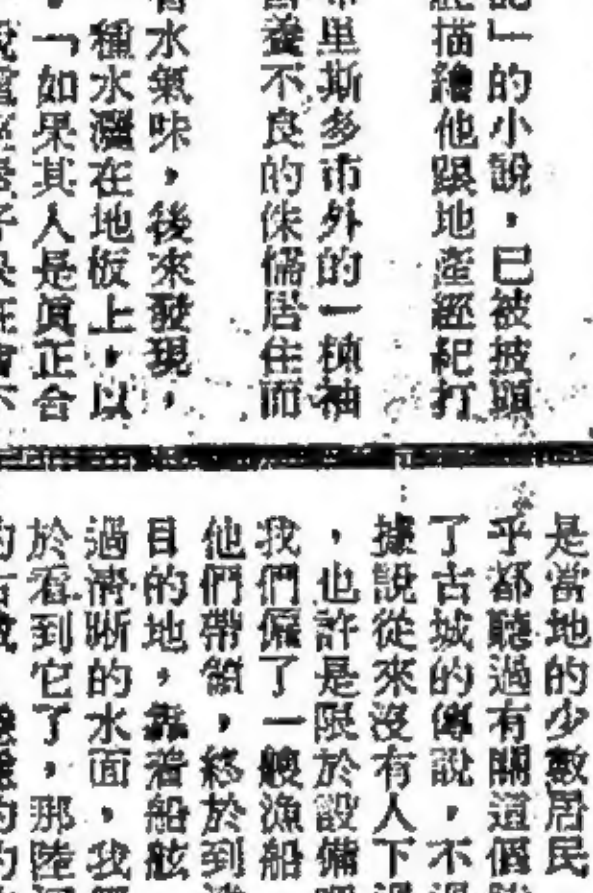 」的小說，已被披頭
描繪他跟地產經紀打
里斯多市外的一楨袖
養不良的侏儒居住而
水氣味，後來發現，
種水灑在地板上，以
，「如果其人是眞正合
是當地的少數居民
乎都聽過有關這個
了古城的傳說，不
據說從來沒有人下
，也許是限於設備
我們僱了一艘漁船
他們帶領，終於到
目的地，靠着船舷
過清晰的水面，我
於看到它了，那陸